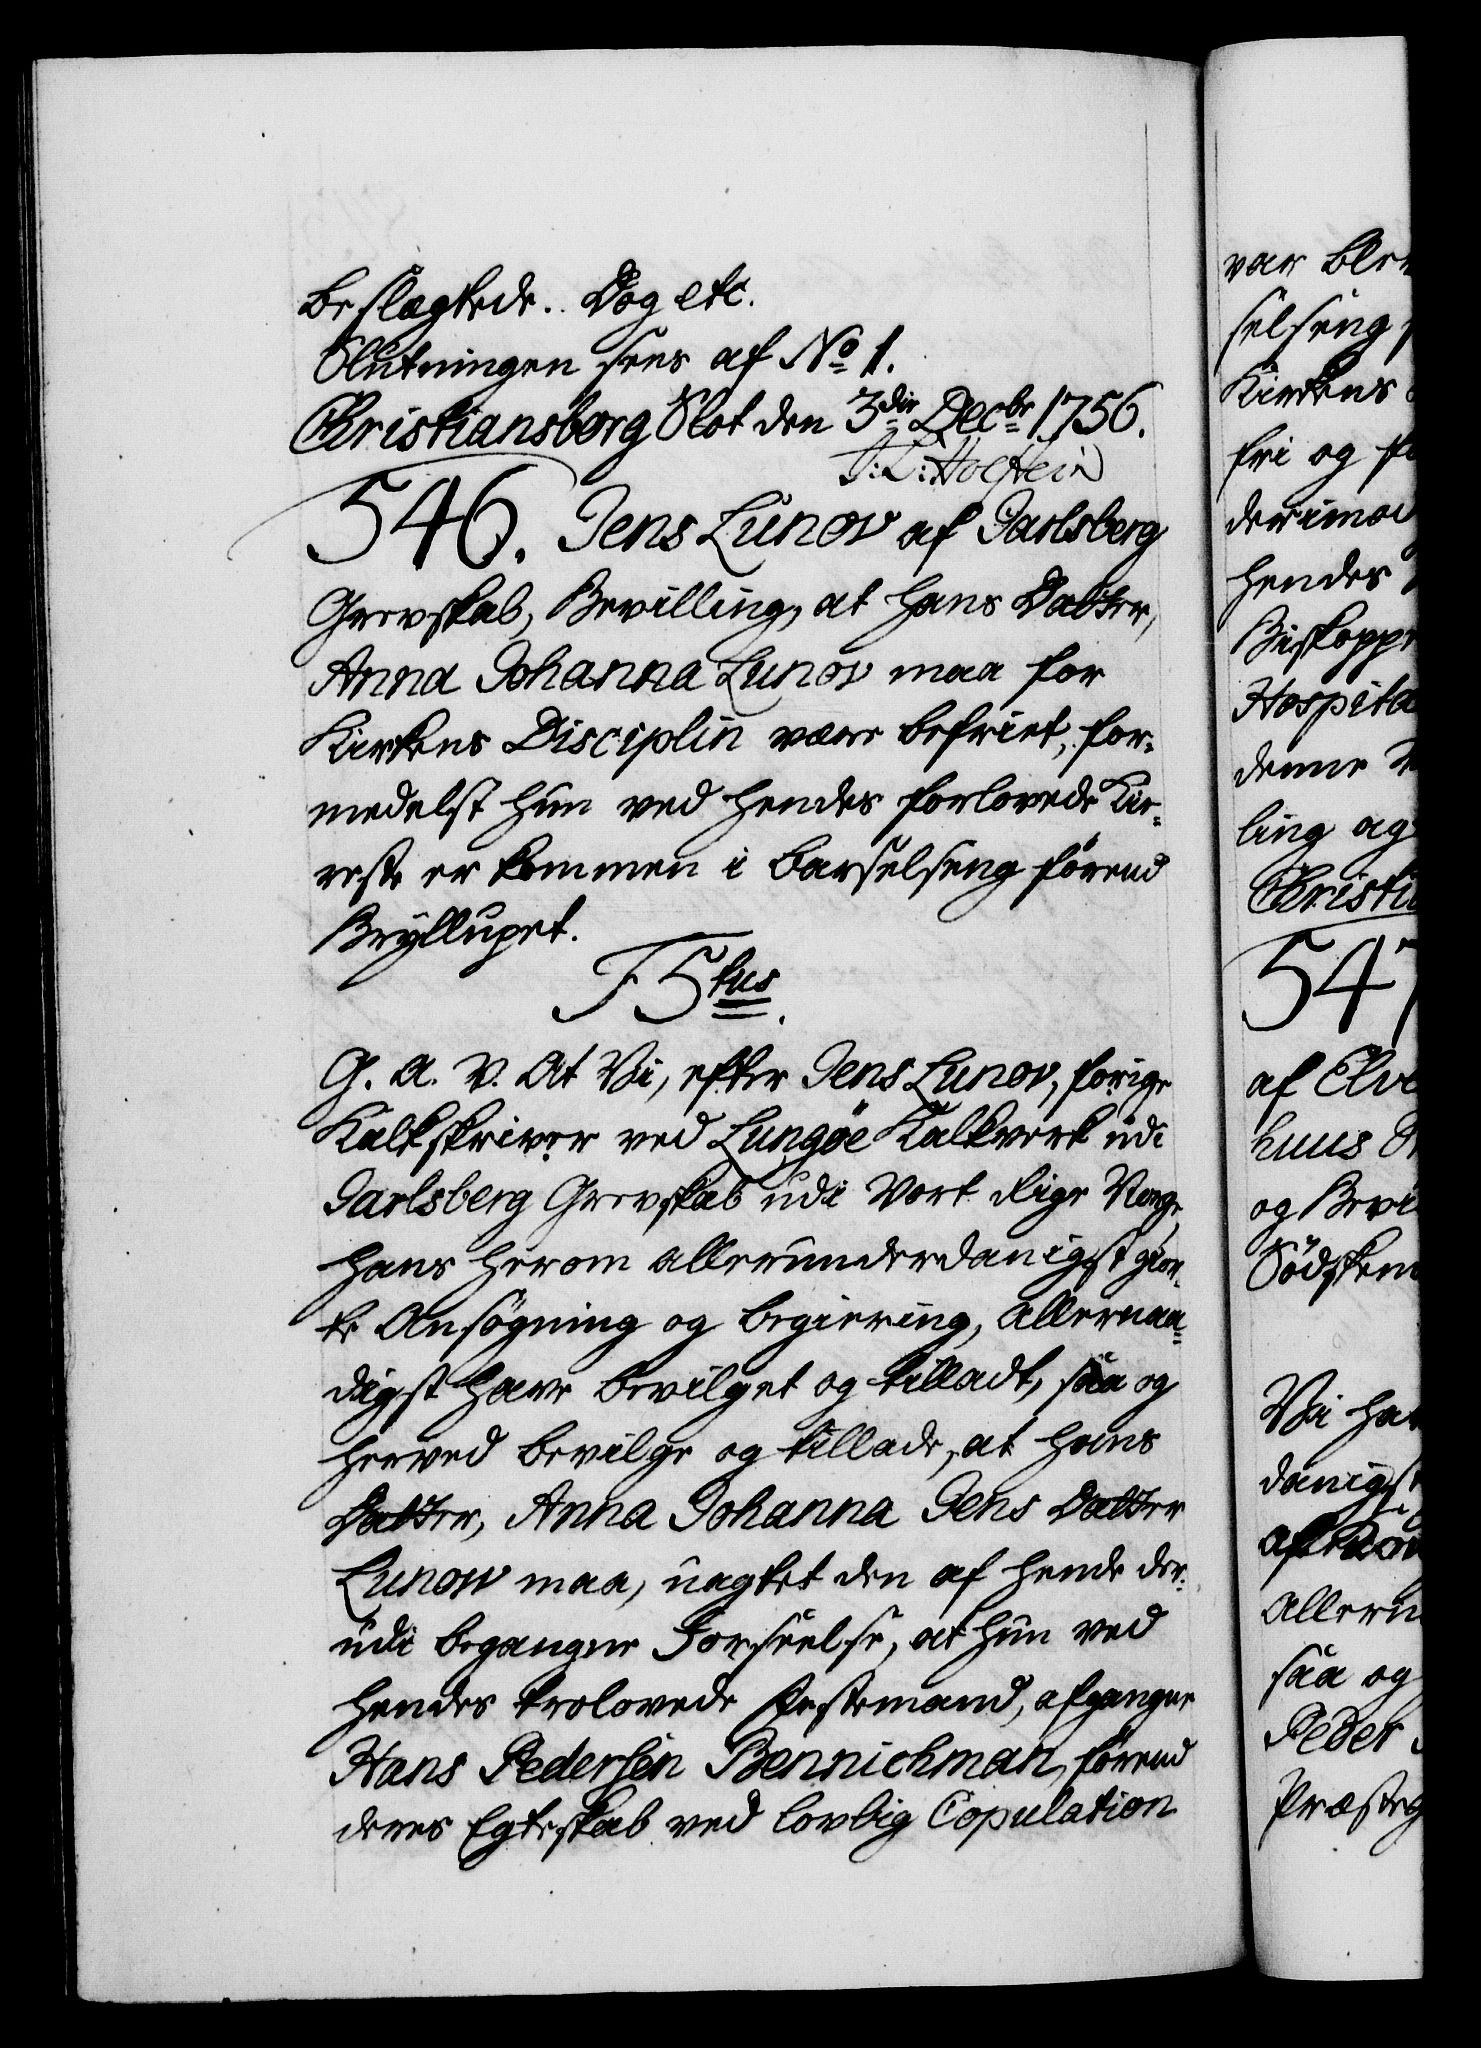 beslægtede. Dog etc.
Slutningen sees af No 1.
Christiansborg Slot den 3die Decbr 1756.
J: L: Holstein
546. Jens Lunov af Jarlsberg
Grevskab, Bevilling, at hans Datter,
Anna Johanna Lunov maa for
Kirkens Disciplin være befriet, for-
medelst hun ved hendes forlovede Kie-
reste er kommen i barselseng förend
Bryllupet.
F 5tus.
G. A. V. At Vi, efter Jens Lunov, forige
Kalkskriver ved Lungöe Kalkverk udi
Jarlsberg Grevskab udi Vort Rige Norge,
hans herom allerunderdanigst gior-
te Ansøgning og begiering, allernaa-
digst have bevilget og tilladt, saa og
herved bevilge og tillade, at hans
Datter, Anna Johanna Jens Datter
Lunow maa, uagtet den af hende der-
udi begangne Forseelse, at hun ved
hendes trolovede Festemand, afgangne
Hans Pedersen Bennichman, förend
deres Egteskab ved lovlig Copulation
var ble
selseng
Kirkens
fri og
derimod
hendes
Biskopp
Hospita
denne
ling og
Christi
547
af Elve
huus
og Bevi
Södsken
Vi ha
danigst
af
allerun
saa og
Peder
Præsteg